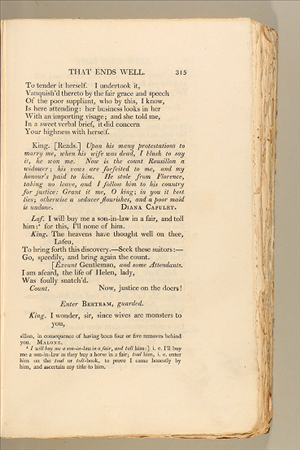 THAT ENDS WELL. 315
To tender it herself. I undertook it,
Vanquish'd thereto by the fair grace and speech
Of the poor suppliant, who by this, I know,
Is here attending: her business looks in her
With an importing visage; and she told me,
In a sweet verbal brief, it did concern
Your highness with herself.
King. [Reads.] Upon his many protestations to
marry me, when his wife was dead, I blush to say
it, he won me. Now is the count Rousillon a
widower; his vows are forfeited to me, and my
honour's paid to him. He stole from Florence,
taking no leave, and I follow him to his country
for justice: Grant it me, O king; in you it best
lies; otherwise a seducer flourishes, and a poor maid
is undone. DIANA CAPULET.
Laf. I will buy me a son-in-law in a fair, and toll
him: for this, I'll none of him.
King. The heavens have thought well on thee,
Lafeu,
To bring forth this discovery.—Seek these suitors:—
Go, speedily, and bring again the count.
[Exeunt Gentleman, and some Attendants.
I am afeard, the life of Helen, lady,
Was foully snatch'd.
Count. Now, justice on the doers!
Enter BERTRAM, guarded.
King. I wonder, sir, since wives are monsters to
you,
sillon, in consequence of having been four or five removes behind
you. MALONE.
I will buy me a son-in-law in a fair, and toll him:] i. e. I'll buy
me a son-in-law as they buy a horse in a fair; toul him, i. e. enter
him on the toul or toll-book, to prove I came honestly by
him, and ascertain my title to him.